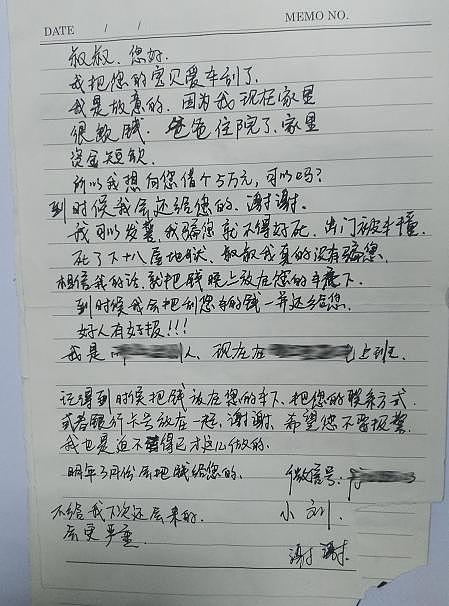 DATE / / MEMO NO.
叔叔，您好，
我把您的宝贝爱车刮了，
我是故意的，因为我现在家里
很缺钱，爸爸住院了，家里
资金短缺
所以我想向您借个5万元，可以吗？
到时候我会还给您的，谢谢谢。
我可以发誓，我骗您就不得好死，出门被车撞，
死了下十八层地狱，叔叔我真的没有骗您，
相信我的话，就把钱晚上放在您的车底下，
到时候我会把刮您车的钱一并还给您，
好人有好报！！！
我是 人，现在在 上班，
记得到时候把钱放在您的车下、把您的联系方式
或者银行卡号放在一起，谢谢，希望您不要报警，
我也是迫不得已才这么做的，
明年3月份会把钱给您的， 微信号：
不给我下次还会来的， 小刘
会更严重 谢谢